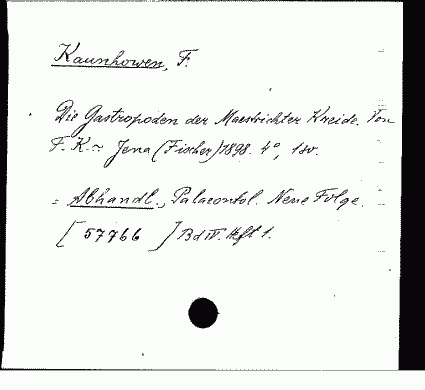 Kaunhowen, F.
Die Gastropoden der Maestrichter Kreide. Von
F. K. ~ Jena (Fischer) 1898. 4°,
= Abhandl., Palaeontol. Neue Folge.
[57766 ] Bd IV. Heft 1.